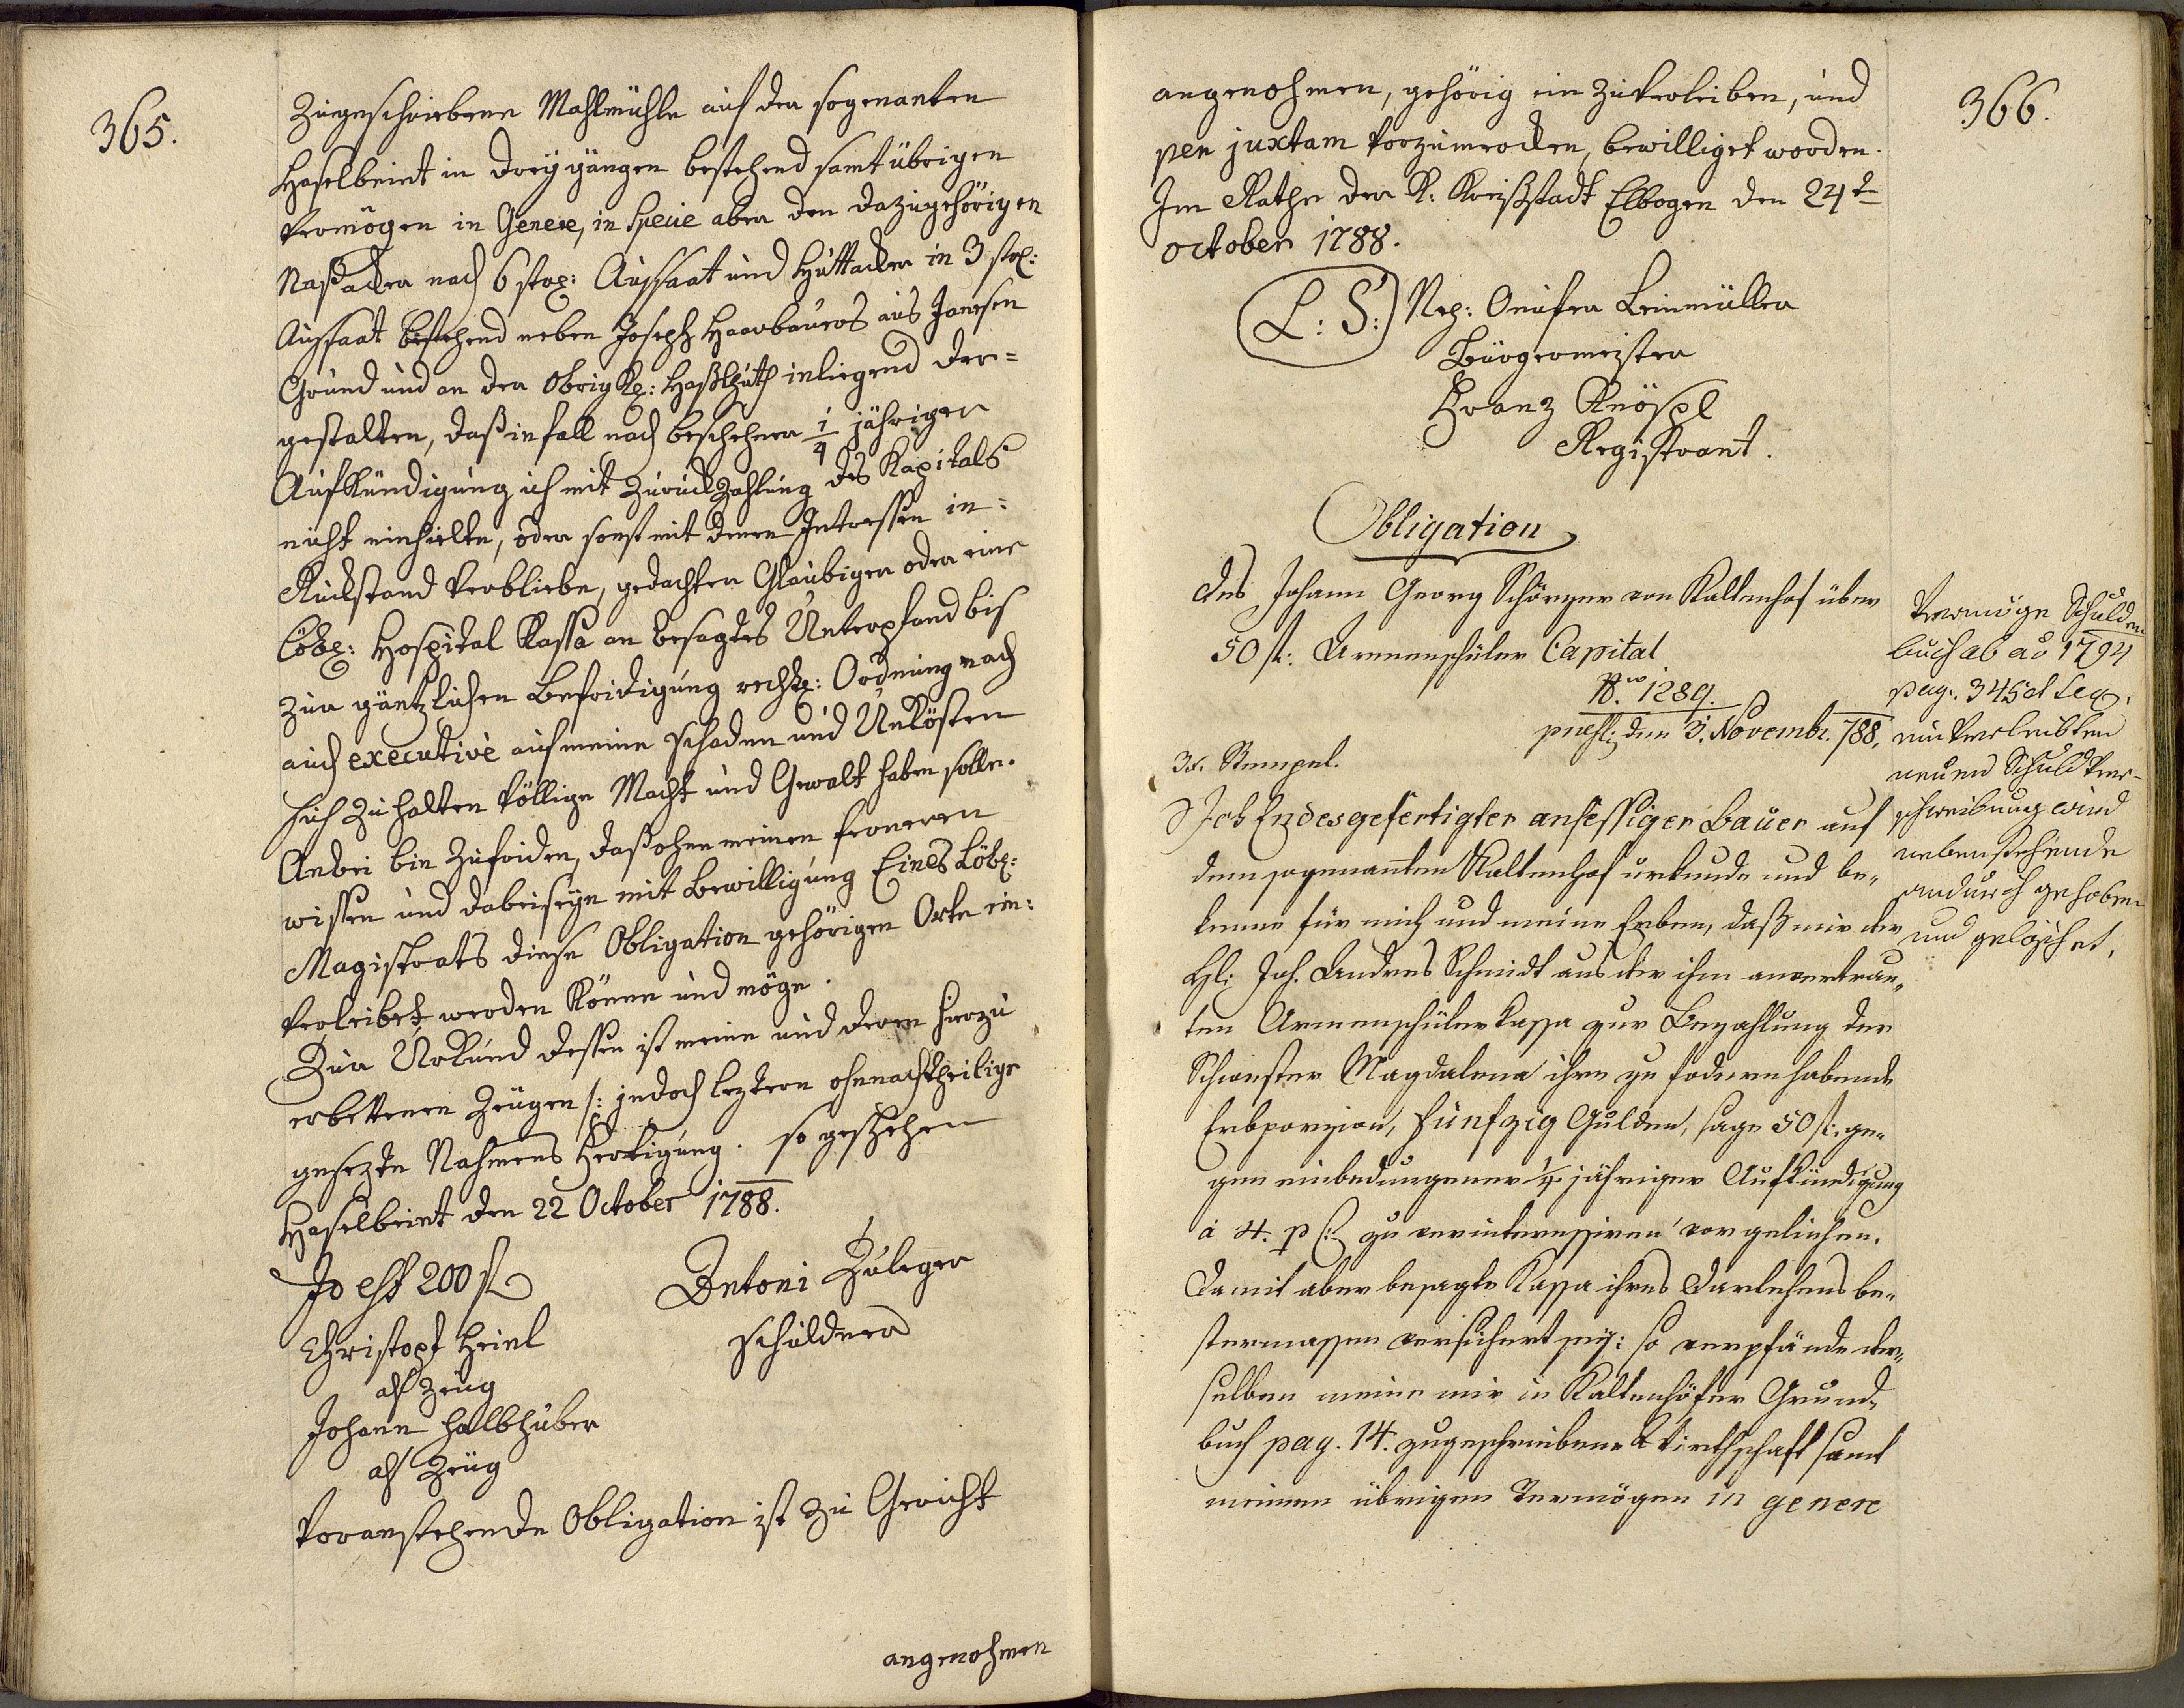 365.
zugeschriebene Mahlmühle auf der sogenanten
Haselbeint in drey gängen bestehend samt übrigen
Vermögen in Genere, in Specie aber den dazugehörigen
Naßacker nach 6 strg: Aussaat und Huttacker in 3 str:
Aussaat bestehend neben Joseph Haarbauers aus Janesen
Grund und an der Obrigkl: Haßlhuth inliegend der=
gestalten, daß infall nach beschehener 1/4 jähriger
Aufkündigung ich mit Zuruckzahlung des Kapitals
nicht einhielte, oder sonst mit denen Intressen in=
Rückstand verbliebe, gedachter Glaubiger oder eine
Löbl: Hospital Kassa an besagtes Unterpfand bis
zur gäntzlichen Befridigung rechtl: Ordnung nach
auch executivè auf meine schaden und Unkösten
sich zu halten völlige Macht und Gewalt haben solle.
Anbei bin zufriden, daß ohne meinen ferneren
wissen und dabeiseyn mit Bewilligung Eines Löbl:
Magistrats diese Obligation gehörigen Orte ein=
verleibet werden könne und möge.
Zur Urkund dessen ist meine und deren hierzu
erbettenen Zeugen /: jedoch leztern ohnnachtheilige
gesezte Nahmens Fertigung. so geschehen
Haselbeint den 22 October 1788.
Id est 200 f
Antoni Zuleger
Schuldner
Christoph Heinl
als Zeug
Johann Halbhuber
als Zeug
Voranstehende Obligation ist zu Gericht
angenohmen
366.
angenohmen, gehörig ein zuverleiben, und
pen juxtam vorzumerken, bewilliget worden.
Im Rathe der K: Kreißstadt Elbogen den 24t
october 1788.
L: S:
Nep: Onufer Beinmüller
Bürgermeister
Franz Knöspl
Registrant.
Obligation
des Johann Georg Schörzer von Kaltenhof über
50 fl: Armenschüler Capital
No. 1289.
den 3. Novembr. 788.
3x. Stempel.
Ich Endesgefertigter ansessiger Bauer auf
dem sogenannten Kaltenhof urkunde und be„
kenne für mich und meine Erben, daß mir der
Hl: Joh. Andres Schmidt aus der ihm anvertrau„
ten Armenschülerkassa zur Bezahlung der
Schwester Magdalena ihre zu fodern habende
Erbporzion, Fünfzig Gulden, sage 50 fl: ge„
gen einbedungener 1/4 jähriger Aufkündigung
à 4. p C: zu verinteressiren vorgeliehen.
Damit aber besagte Kassa ihres Darlehens be„
stermassen versichert sey: so verpfände der„
selben meine mir in Kaltenhöfer Grund„
buch pag. 14. zugeschriebene Wirthschaft samt
meinen übrigen Vermögen in genere
Vermöge Schulden
buch ab ao 1794
pag. 345 et seq.
einverleibten
neuen Schuldver-
schreibung wird
nebenstehende
andurch gehoben
und gelöschet.